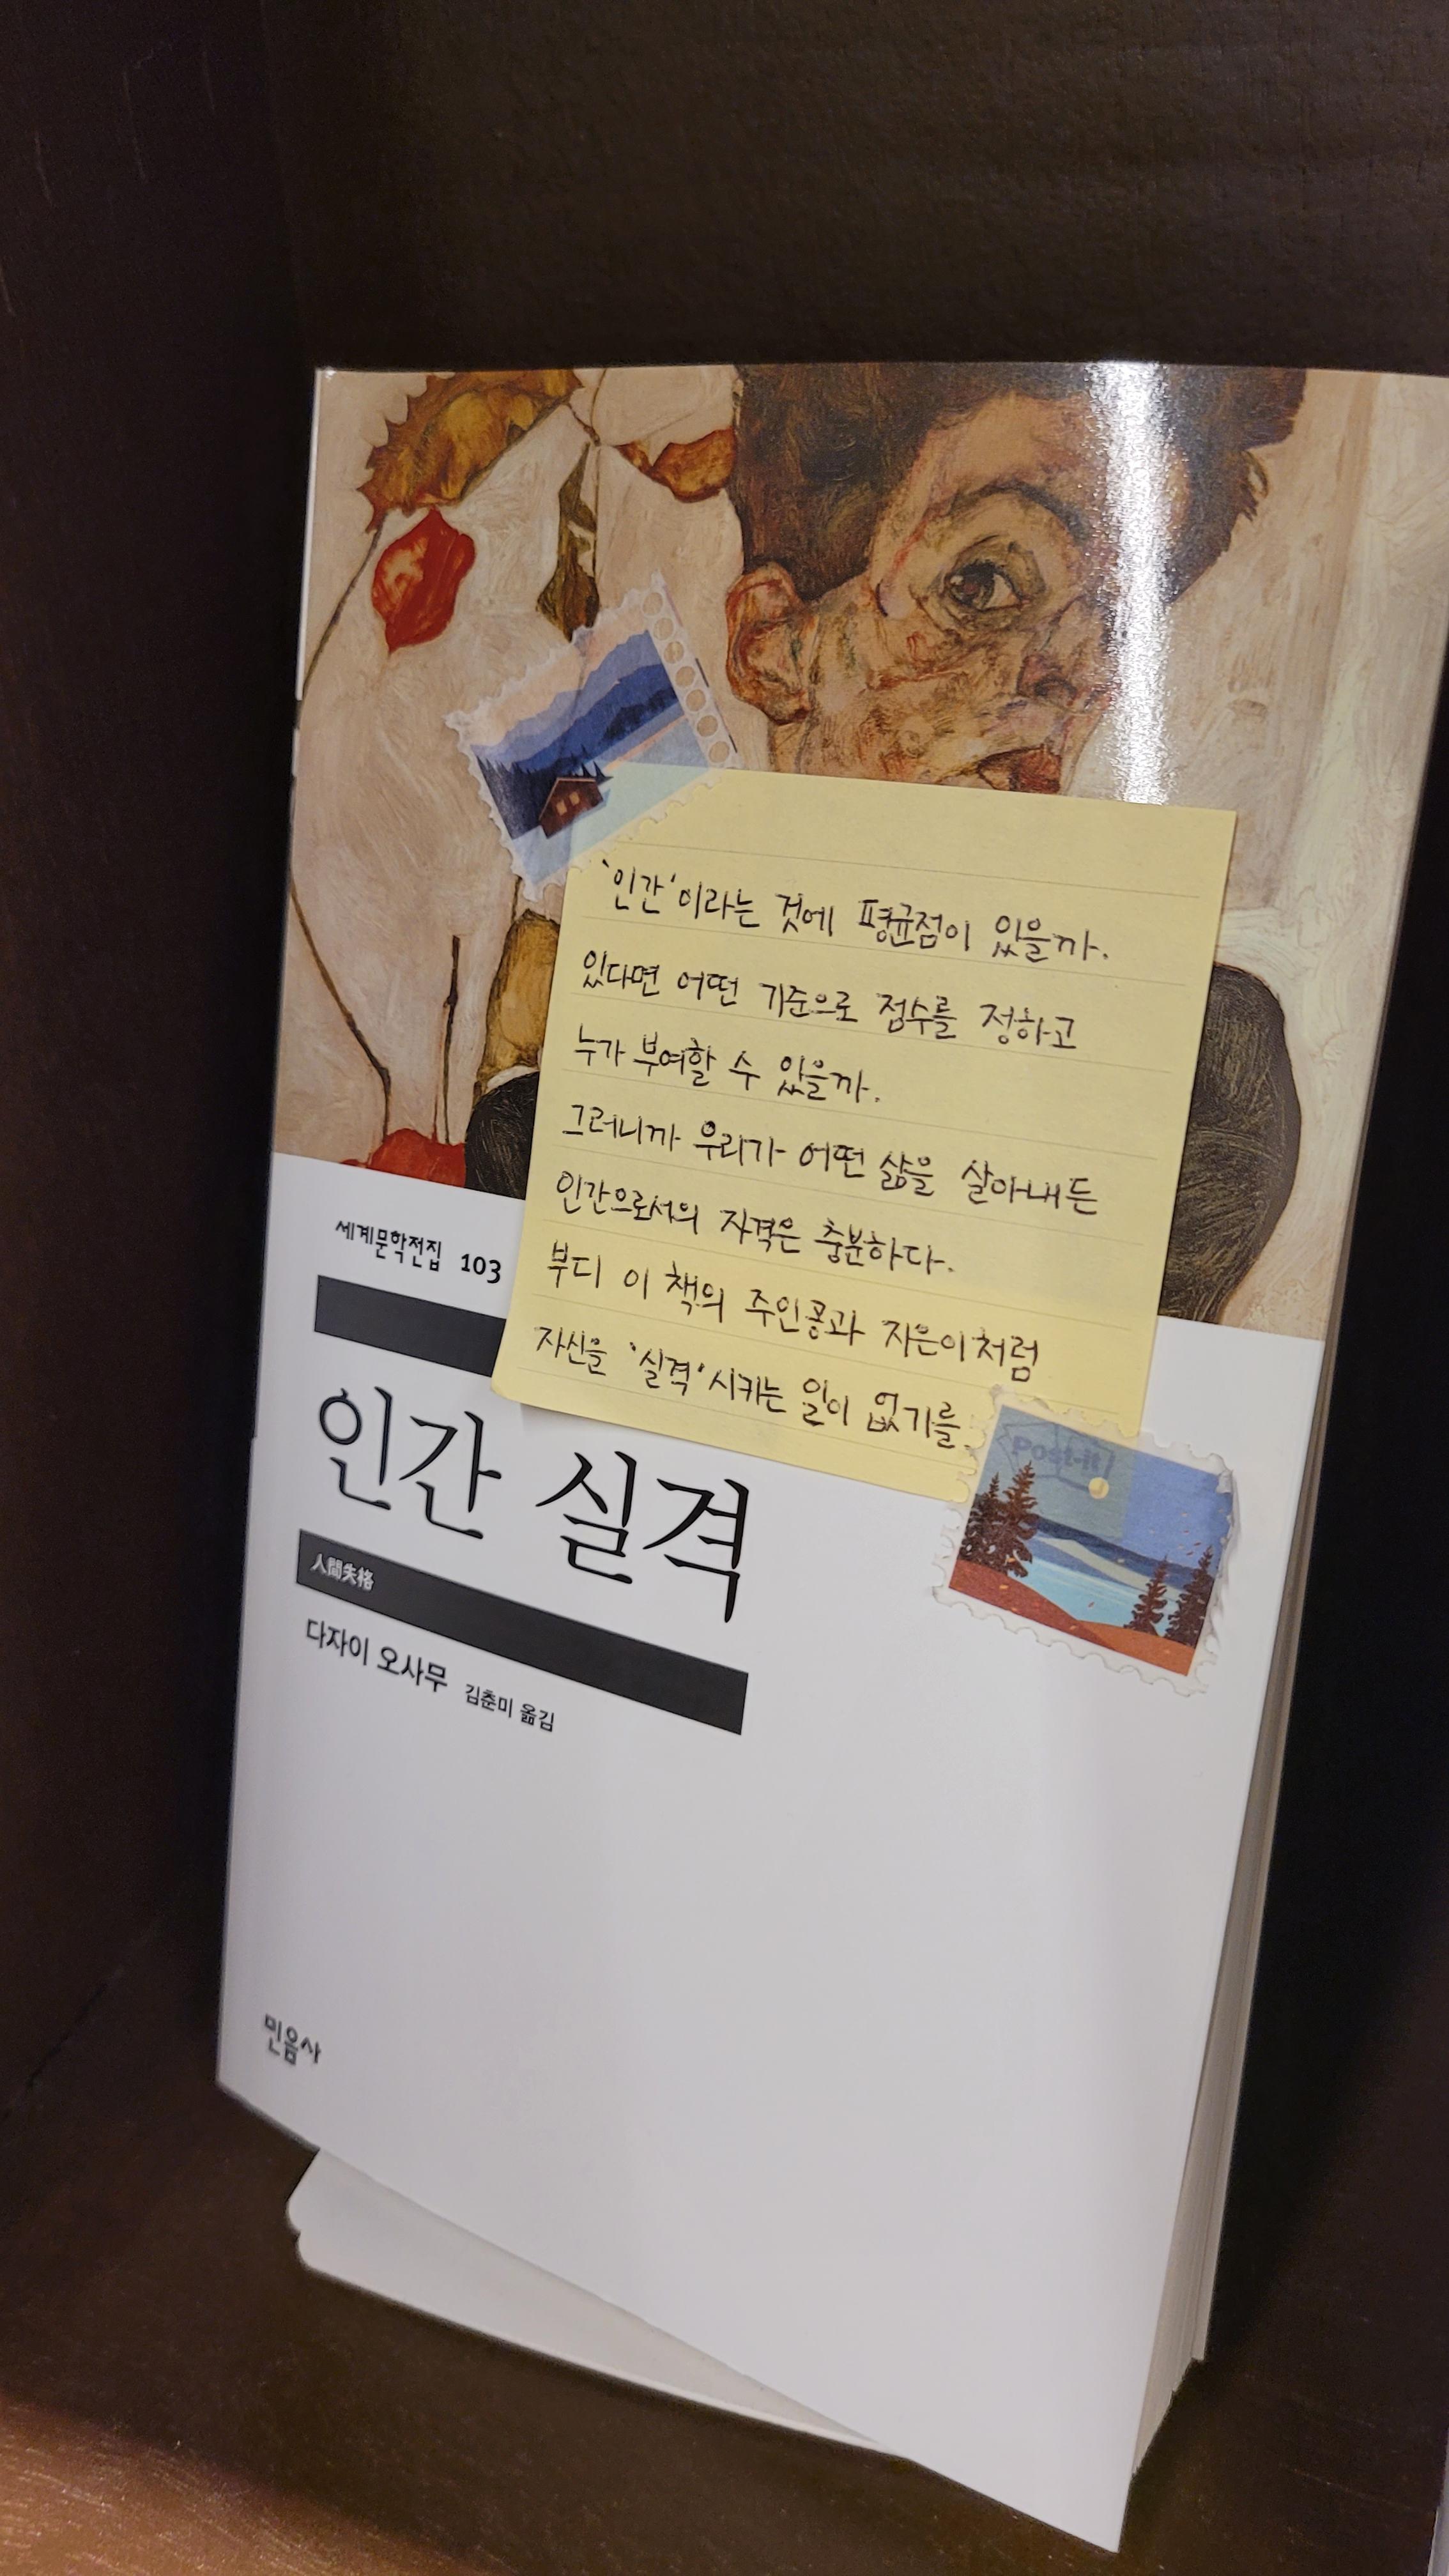 '인간'이라는 것에 평균점이 있을까.
있다면 어떤 기준으로 점수를 정하고
누가 부여할 수 있을까.
그러니까 우리가 어떤 삶을 살아내든
인간으로서의 자격은 충분하다.
부디 이 책의 주인공과 지은이처럼
자신을 '실격'시키는 일이 없기를.
Post-it
세계문학전집 103
인간 실격
人間失格
다자이 오사무 김춘미 옮김
민음사